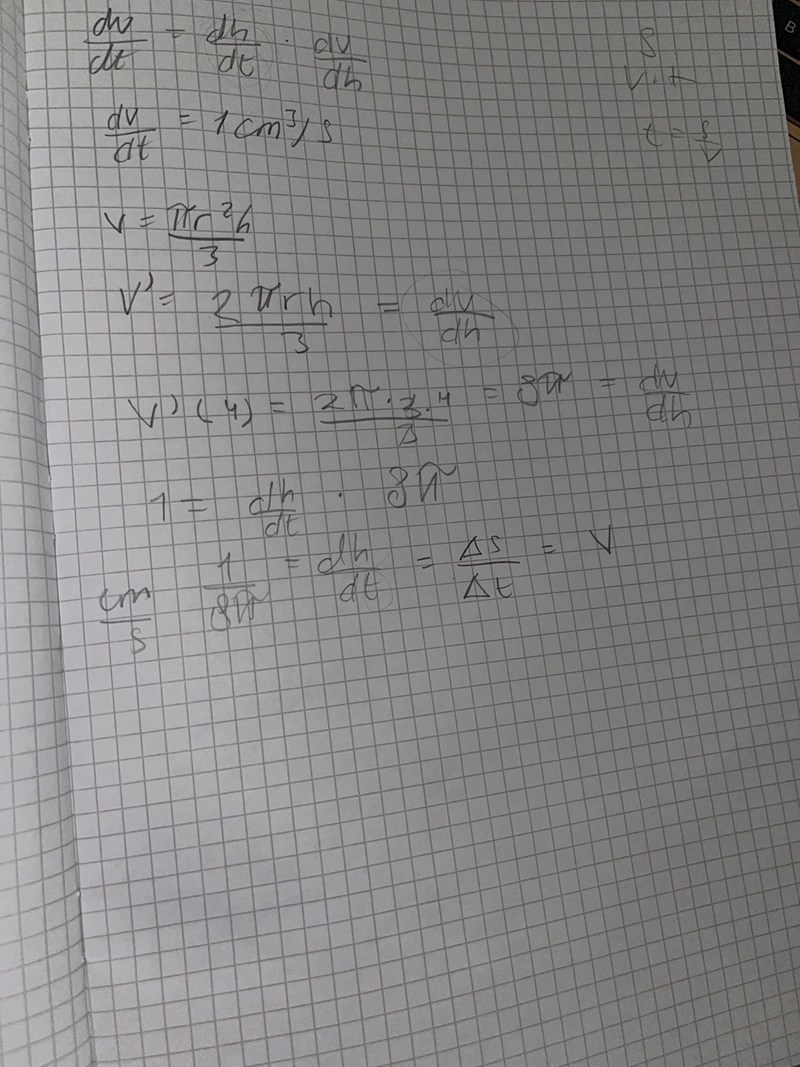 dv/dt = dh/dt · dv/dh
S
v·t
dv/dt = 1 cm³/s
t = s/v
V = πr²h/3
V' = 2πrh/3 = dv/dh
V'(4) = 2π·3·4/3 = 8π = dv/dh
1 = dh/dt · 8π
cm/s 1/8π = dh/dt = Δs/Δt = V